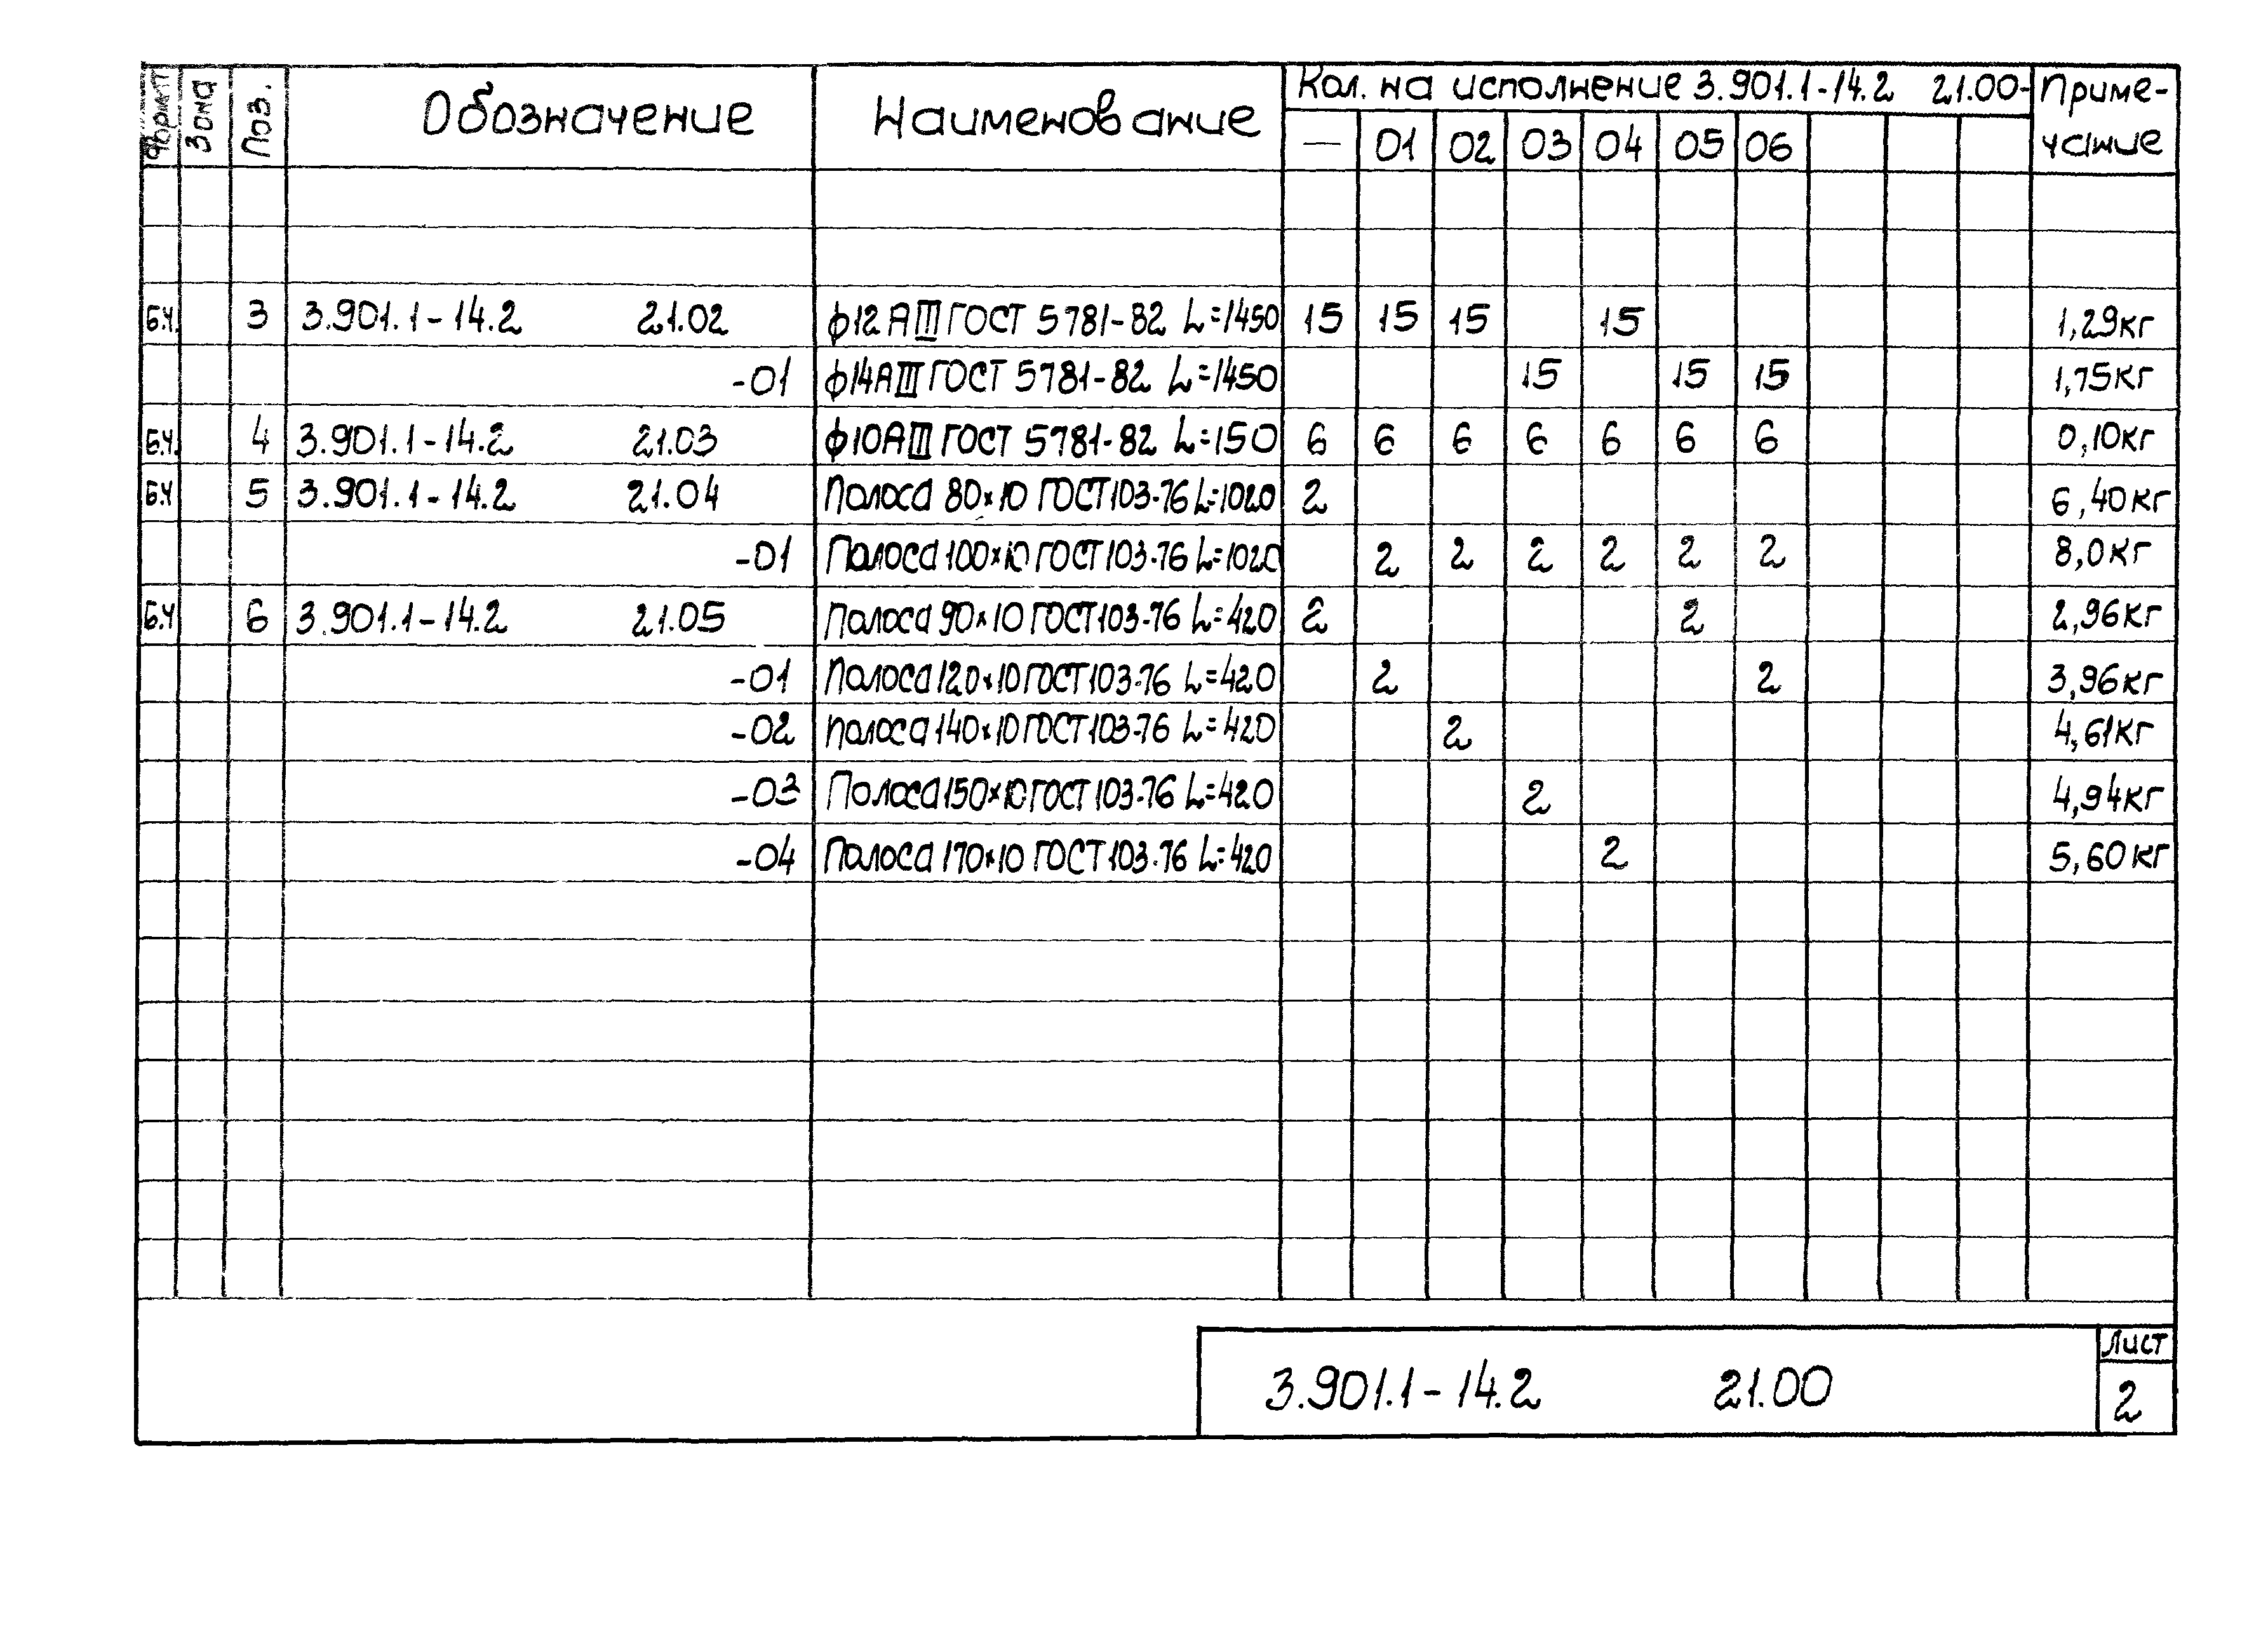 Формат Зона Поз. Обозначение Наименование Кол. на исполнение 3.901.1-14.2 21.00- Приме-
— 01 02 03 04 05 06 чание
Б.Ч. 3 3.901.1-14.2 21.02 ф12 АIII ГОСТ 5781-82 L=1450 15 15 15 15 1,29кг
-01 ф14АIII ГОСТ 5781-82 L=1450 15 15 15 1,75кг
Б.Ч. 4 3.901.1-14.2 21.03 ф10АIII ГОСТ 5781-82 L=150 6 6 6 6 6 6 6 0,10кг
Б.Ч 5 3.901.1-14.2 21.04 Полоса 80×10 ГОСТ103-76 L=1020 2 6,40кг
-01 Полоса 100×10 ГОСТ103-76 L=1020 2 2 2 2 2 2 8,0кг
Б.Ч 6 3.901.1-14.2 21.05 Полоса 90×10 ГОСТ103-76 L=420 2 2 2,96кг
-01 Полоса 120×10 ГОСТ103-76 L=420 2 2 3,96кг
-02 Полоса 140×10 ГОСТ103-76 L=420 2 4,61кг
-03 Полоса 150×10 ГОСТ103-76 L=420 2 4,94кг
-04 Полоса 170×10 ГОСТ103-76 L=420 2 5,60кг
3.901.1-14.2 21.00 Лист
2